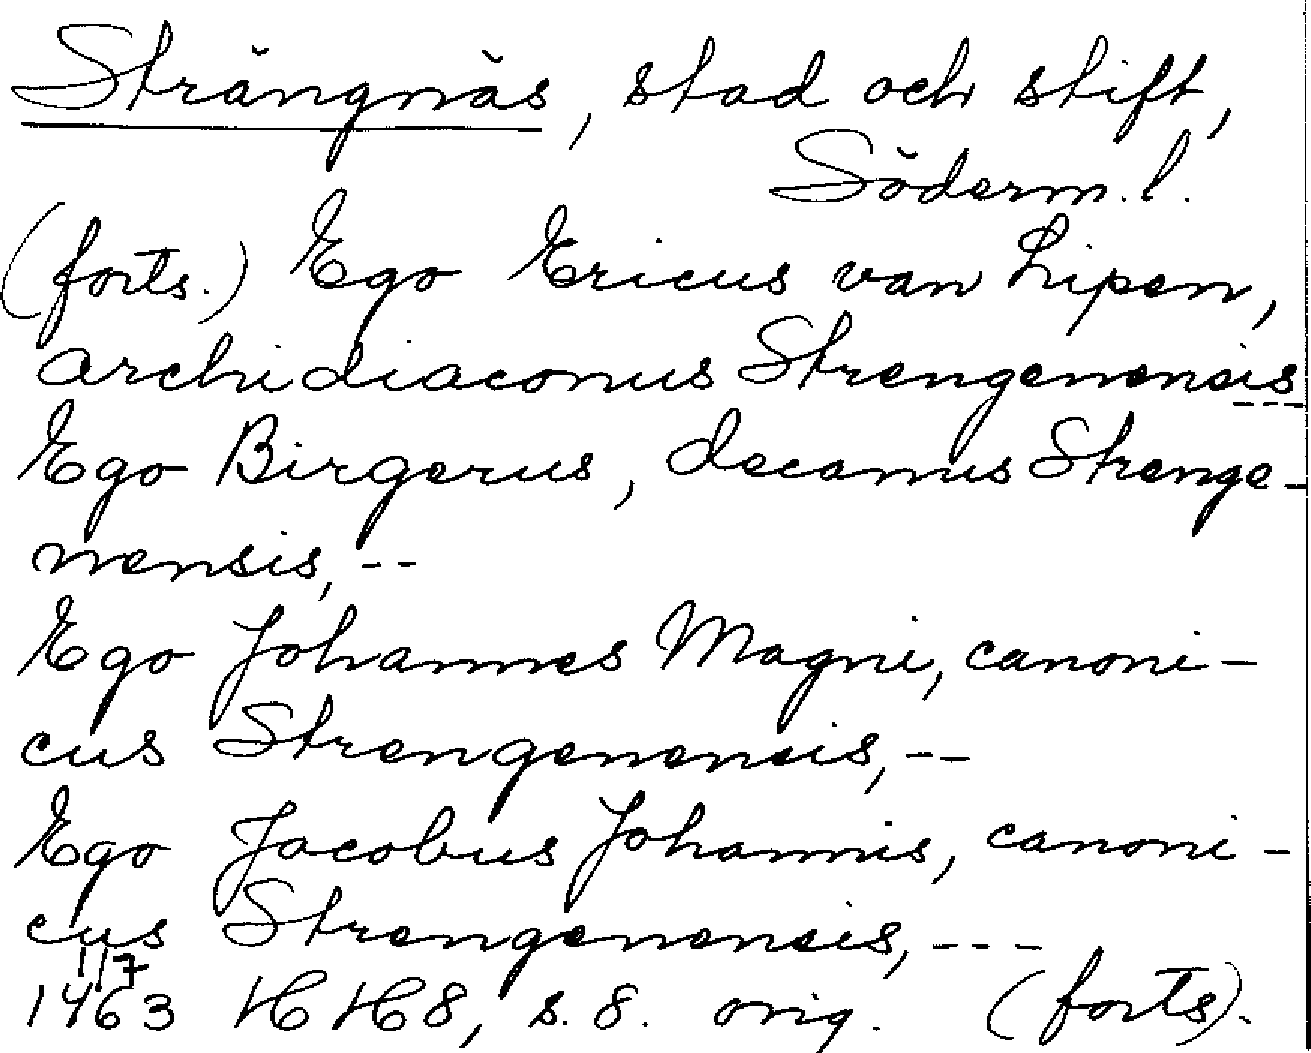 Strängnäs, stad och stift,
Söderm.l.
(forts.) Ego Ericus van Lipen,
archidiaconus Strengenensis
---
Ego Birgerus, decanus Strenge-
nensis, --
Ego Johannes Magni, canoni-
cus Strengenensis, --
Ego Jacobus Johannis, canoni-
cus Strengenensis, ---
1/7
1463 HH8, s. 8. orig. (forts).